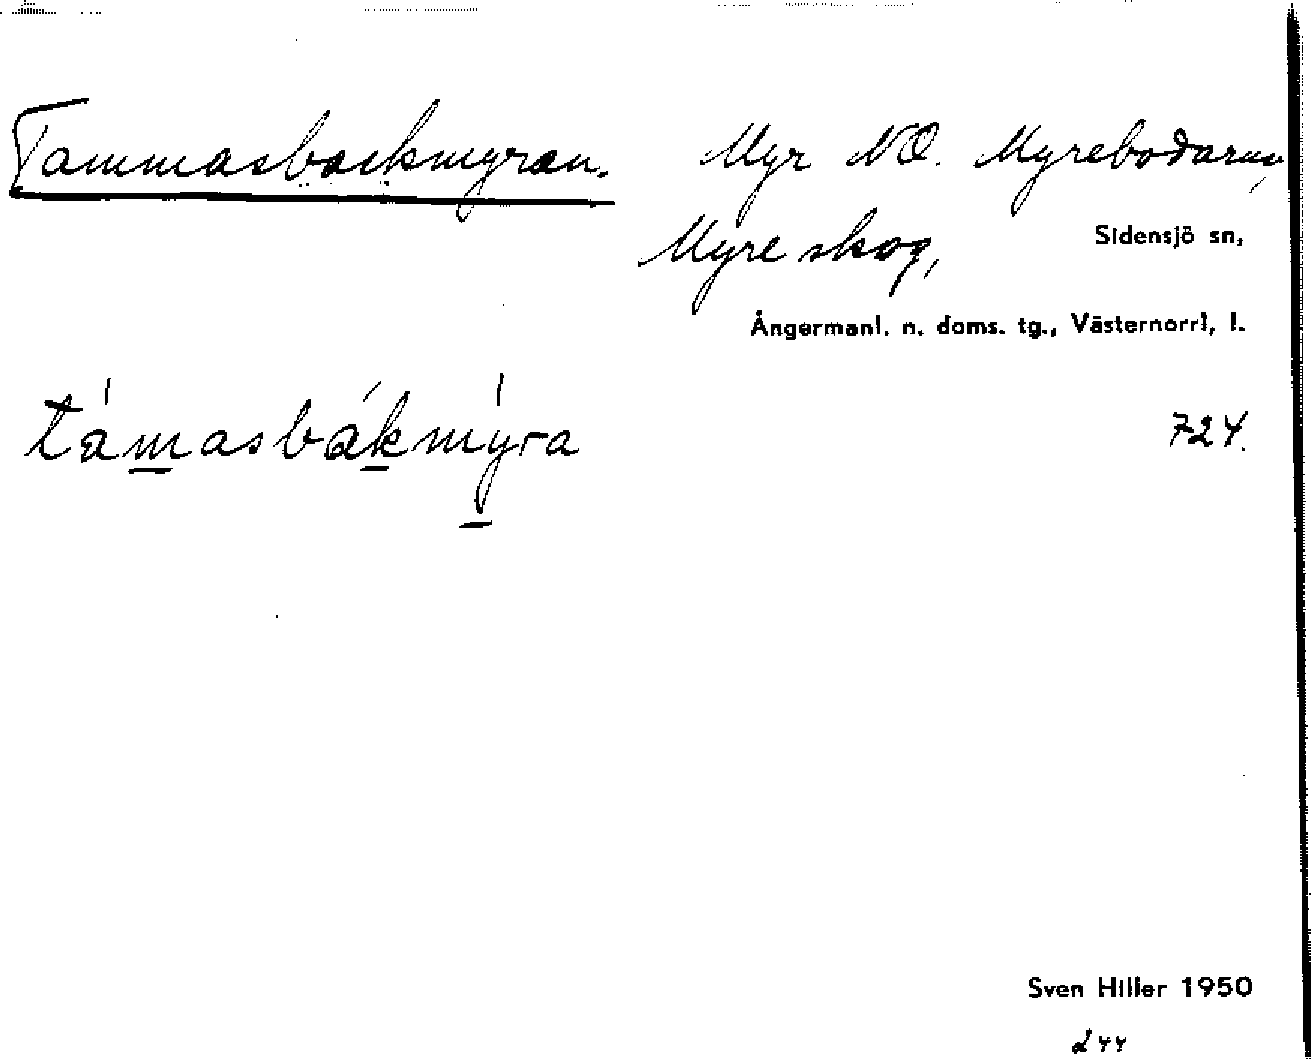 Tammasbackmyran. Myr NO. Myrebodarna,
Myre skog, Sidensjö sn,
Ångermanl. n. doms. tg., Västernorrl, l.
támasbákmýra 724.
Sven Hiller 1950
244